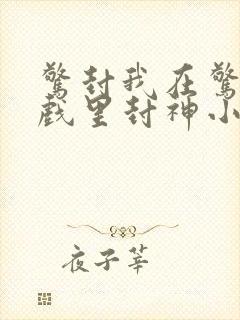 驚封我在驚
戲里封神小
夜子莘